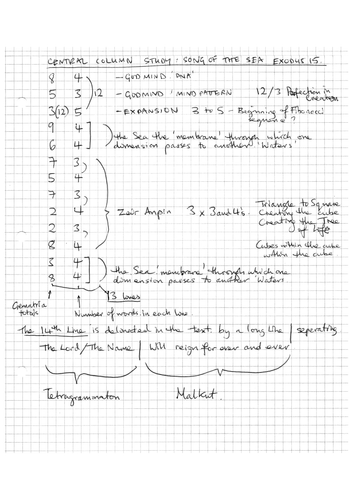 CENTRAL COLUMN STUDY: SONG OF THE SEA EXODUS 15.
8 4 — GODMIND 'DNA'
5 3 12 — GODMIND 'MIND PATTERN 12/3 Perfection in Creation
3(12) 5 — EXPANSION 3 to 5 – Beginning of Fibonacci sequence?
9 4 the Sea the 'membrane' through which one
6 4 dimension passes to another 'Waters'.
7 3
5 4
7 3 Triangle to Square
2 4 Zeir Anpin 3 x 3 and 4's Creating the cube
2 3 Creating the Tree of Life
8 4 Cubes within the cube within the cube
3 4 the Sea 'membrane' through which one
8 4 dimension passes to another Waters.
13 lines
Gematria totals
Number of words in each line
The 14th Line is delineated in the text by a long line | seperating
The Lord/The Name | Will reign for ever and ever
Tetragrammaton Malkut.